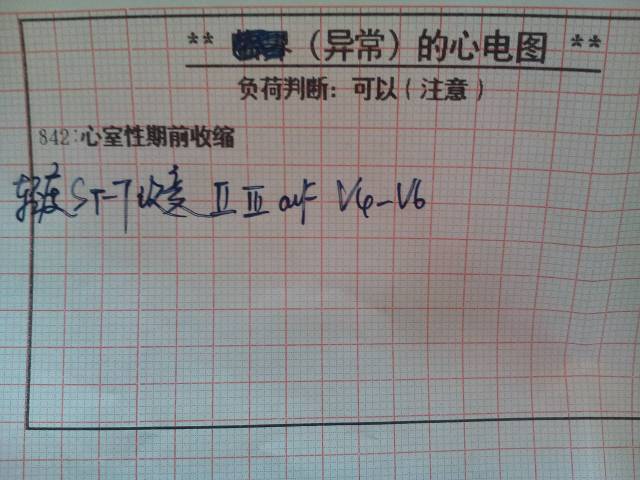 ** （异常）的心电图 **
负荷判断：可以（注意）
842:心室性期前收缩
轻度ST-T改变 II III avF V4-V6